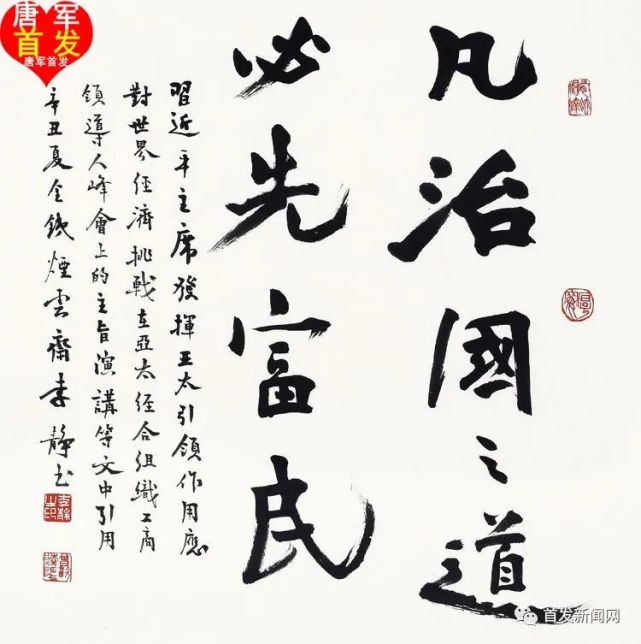 唐军
首发
唐军首发
凡治國之道
必先富民
習近平主席發揮亞太引領作用應
對世界經濟挑戰在亞太經合組織工商
領導人峰會上的主旨演講等文中引用
辛丑夏鐵煙雲齋李靜书
李靜之印
首发新闻网